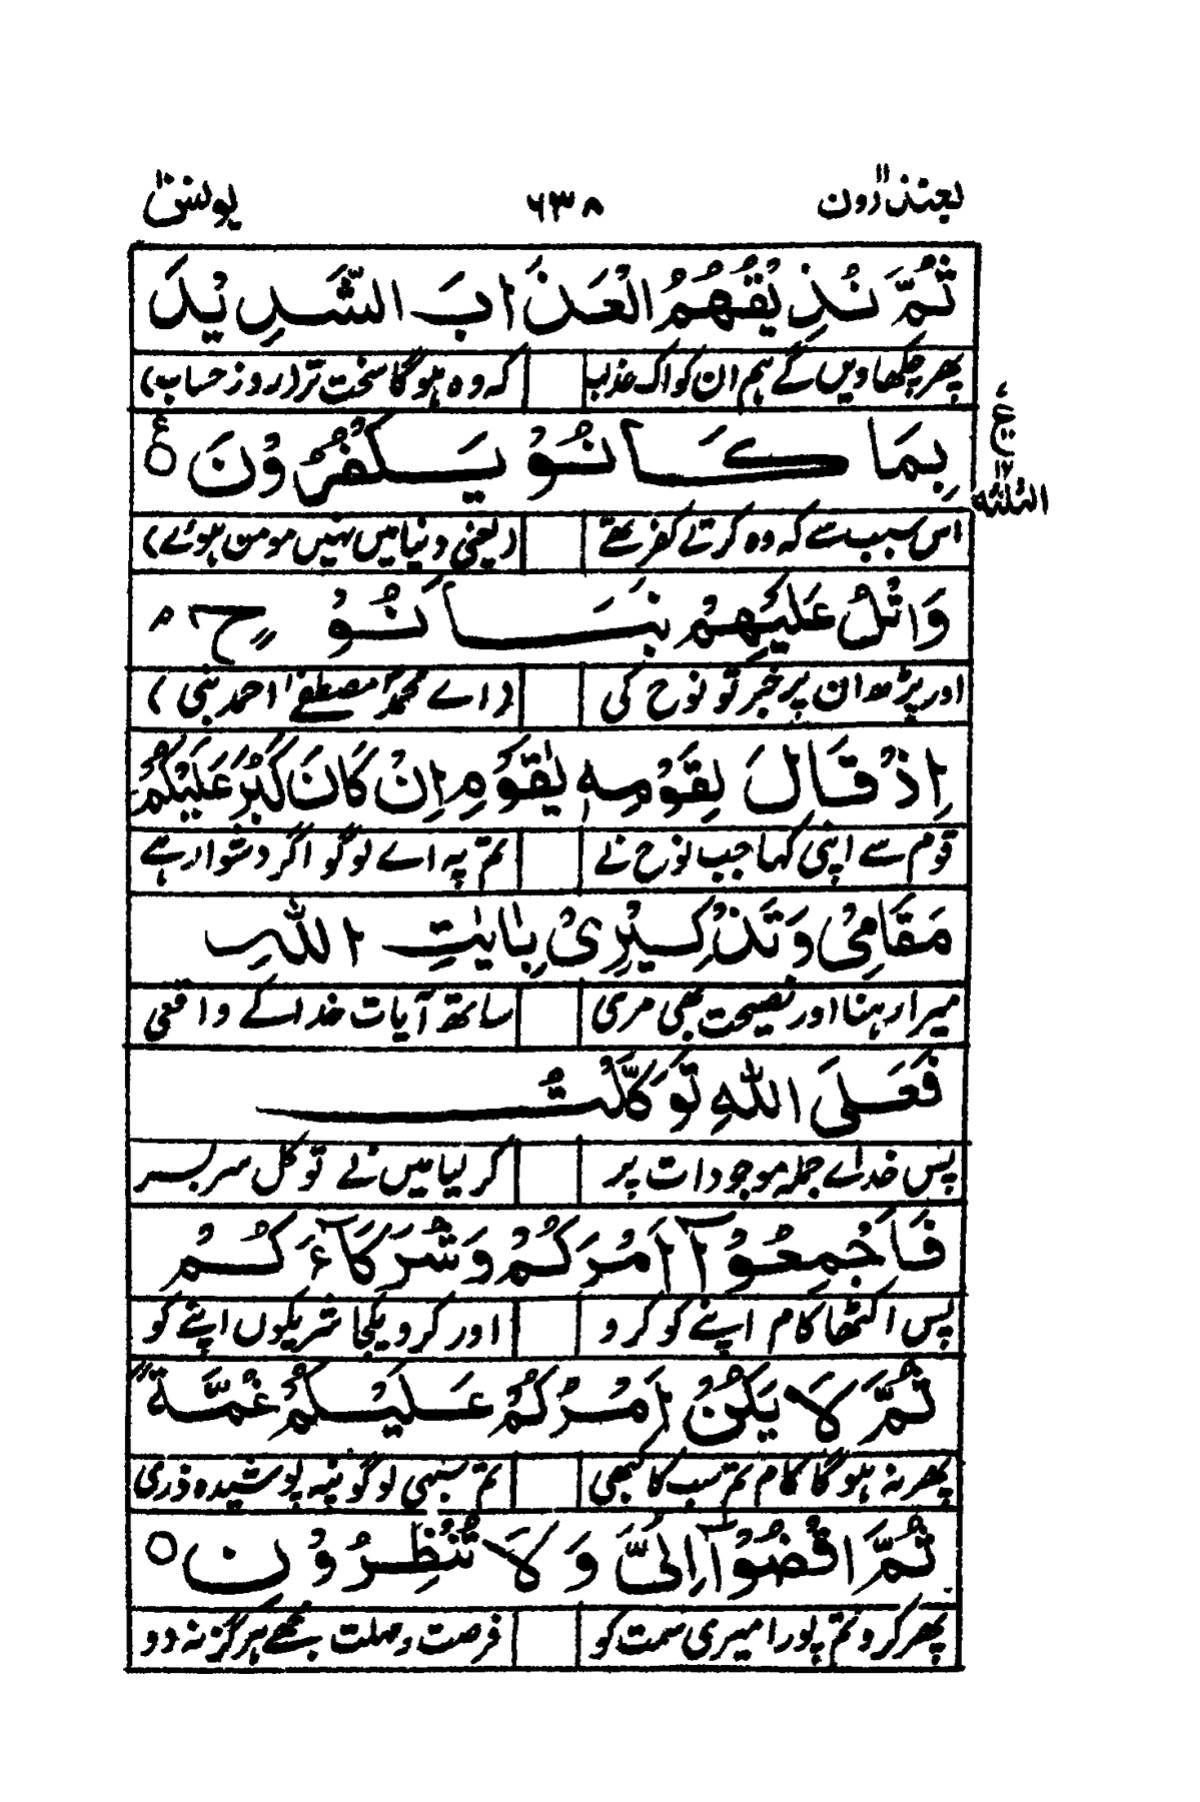 یعتذرون ۱۱ ۶۳۸ یونس ۱۰
ثُمَّ نُذِيْقُهُمُ الْعَذَابَ الشَّدِيْدَ
پھر چکھادیں گے ہم ان کو اک عذاب کہ وہ ہوگا سخت تر (روز حساب)
بِمَا كَانُوْا يَكْفُرُوْنَ ○ ع
اس سبب سے کہ وہ کرتے کفر تھے (یعنی دنیا میں نہیں مومن ہوئے)
الثلثة
وَاتْلُ عَلَيْهِمْ نَبَاَ نُوْحٍ م
اور پڑھ ان پر خبر تو نوح کی (اے محمد مصطفےٰ احمد نبی)
اِذْ قَالَ لِقَوْمِهٖ يٰقَوْمِ اِنْ كَانَ كَبُرَ عَلَيْكُمْ
قوم سے اپنی کہا جب نوح نے تم پہ اے لوگو اگر دشوار ہے
مَّقَامِيْ وَتَذْكِيْرِيْ بِاٰيٰتِ اللّٰهِ
میرا رہنا اور نصیحت بھی مری ساتھ آیات خدا کے واقعی
فَعَلَى اللّٰهِ تَوَكَّلْتُ
پس خدائے جملہ موجودات پر کر لیا میں نے توکل سربسر
فَاَجْمِعُوْٓا اَمْرَكُمْ وَشُرَكَآءَكُمْ
پس اکٹھا کام اپنے کو کرو اور کرو یکجا شریکوں اپنے کو
ثُمَّ لَا يَكُنْ اَمْرُكُمْ عَلَيْكُمْ غُمَّةً
پھر نہ ہوگا کام تم سب کا کبھی تم سبھی لوگو پہ پوشیدہ ذری
ثُمَّ اقْضُوْٓا اِلَيَّ وَلَا تُنْظِرُوْنِ ○
پھر کرو تم پورا میری سمت کو فرصت و مہلت مجھے ہرگز نہ دو